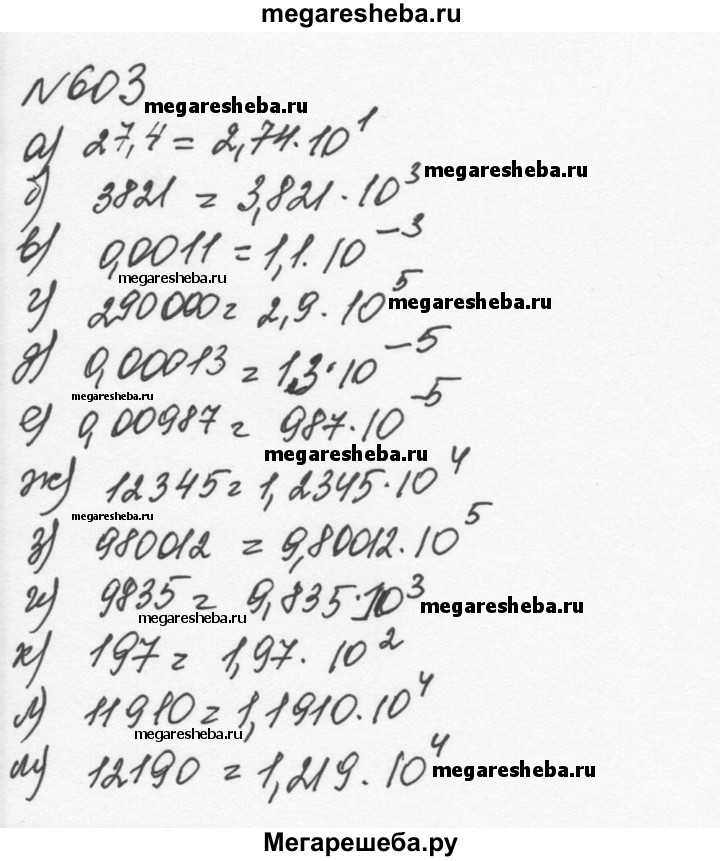 megaresheba.ru
№603
megaresheba.ru
а) 27,4 = 2,74·10¹
б) 3821 = 3,821·10³ megaresheba.ru
в) 0,0011 = 1,1·10⁻³
megaresheba.ru
г) 290000 = 2,9·10⁵ megaresheba.ru
д) 0,00013 = 1,3·10⁻⁵
megaresheba.ru
е) 0,00987 = 987·10⁻⁵
megaresheba.ru
ж) 12345 = 1,2345·10⁴
megaresheba.ru
з) 980012 = 9,80012·10⁵
и) 9835 = 9,835·10³ megaresheba.ru
megaresheba.ru
к) 197 = 1,97·10²
л) 11910 = 1,1910·10⁴
megaresheba.ru
м) 12190 = 1,219·10⁴ megaresheba.ru
Мегарешеба.ру